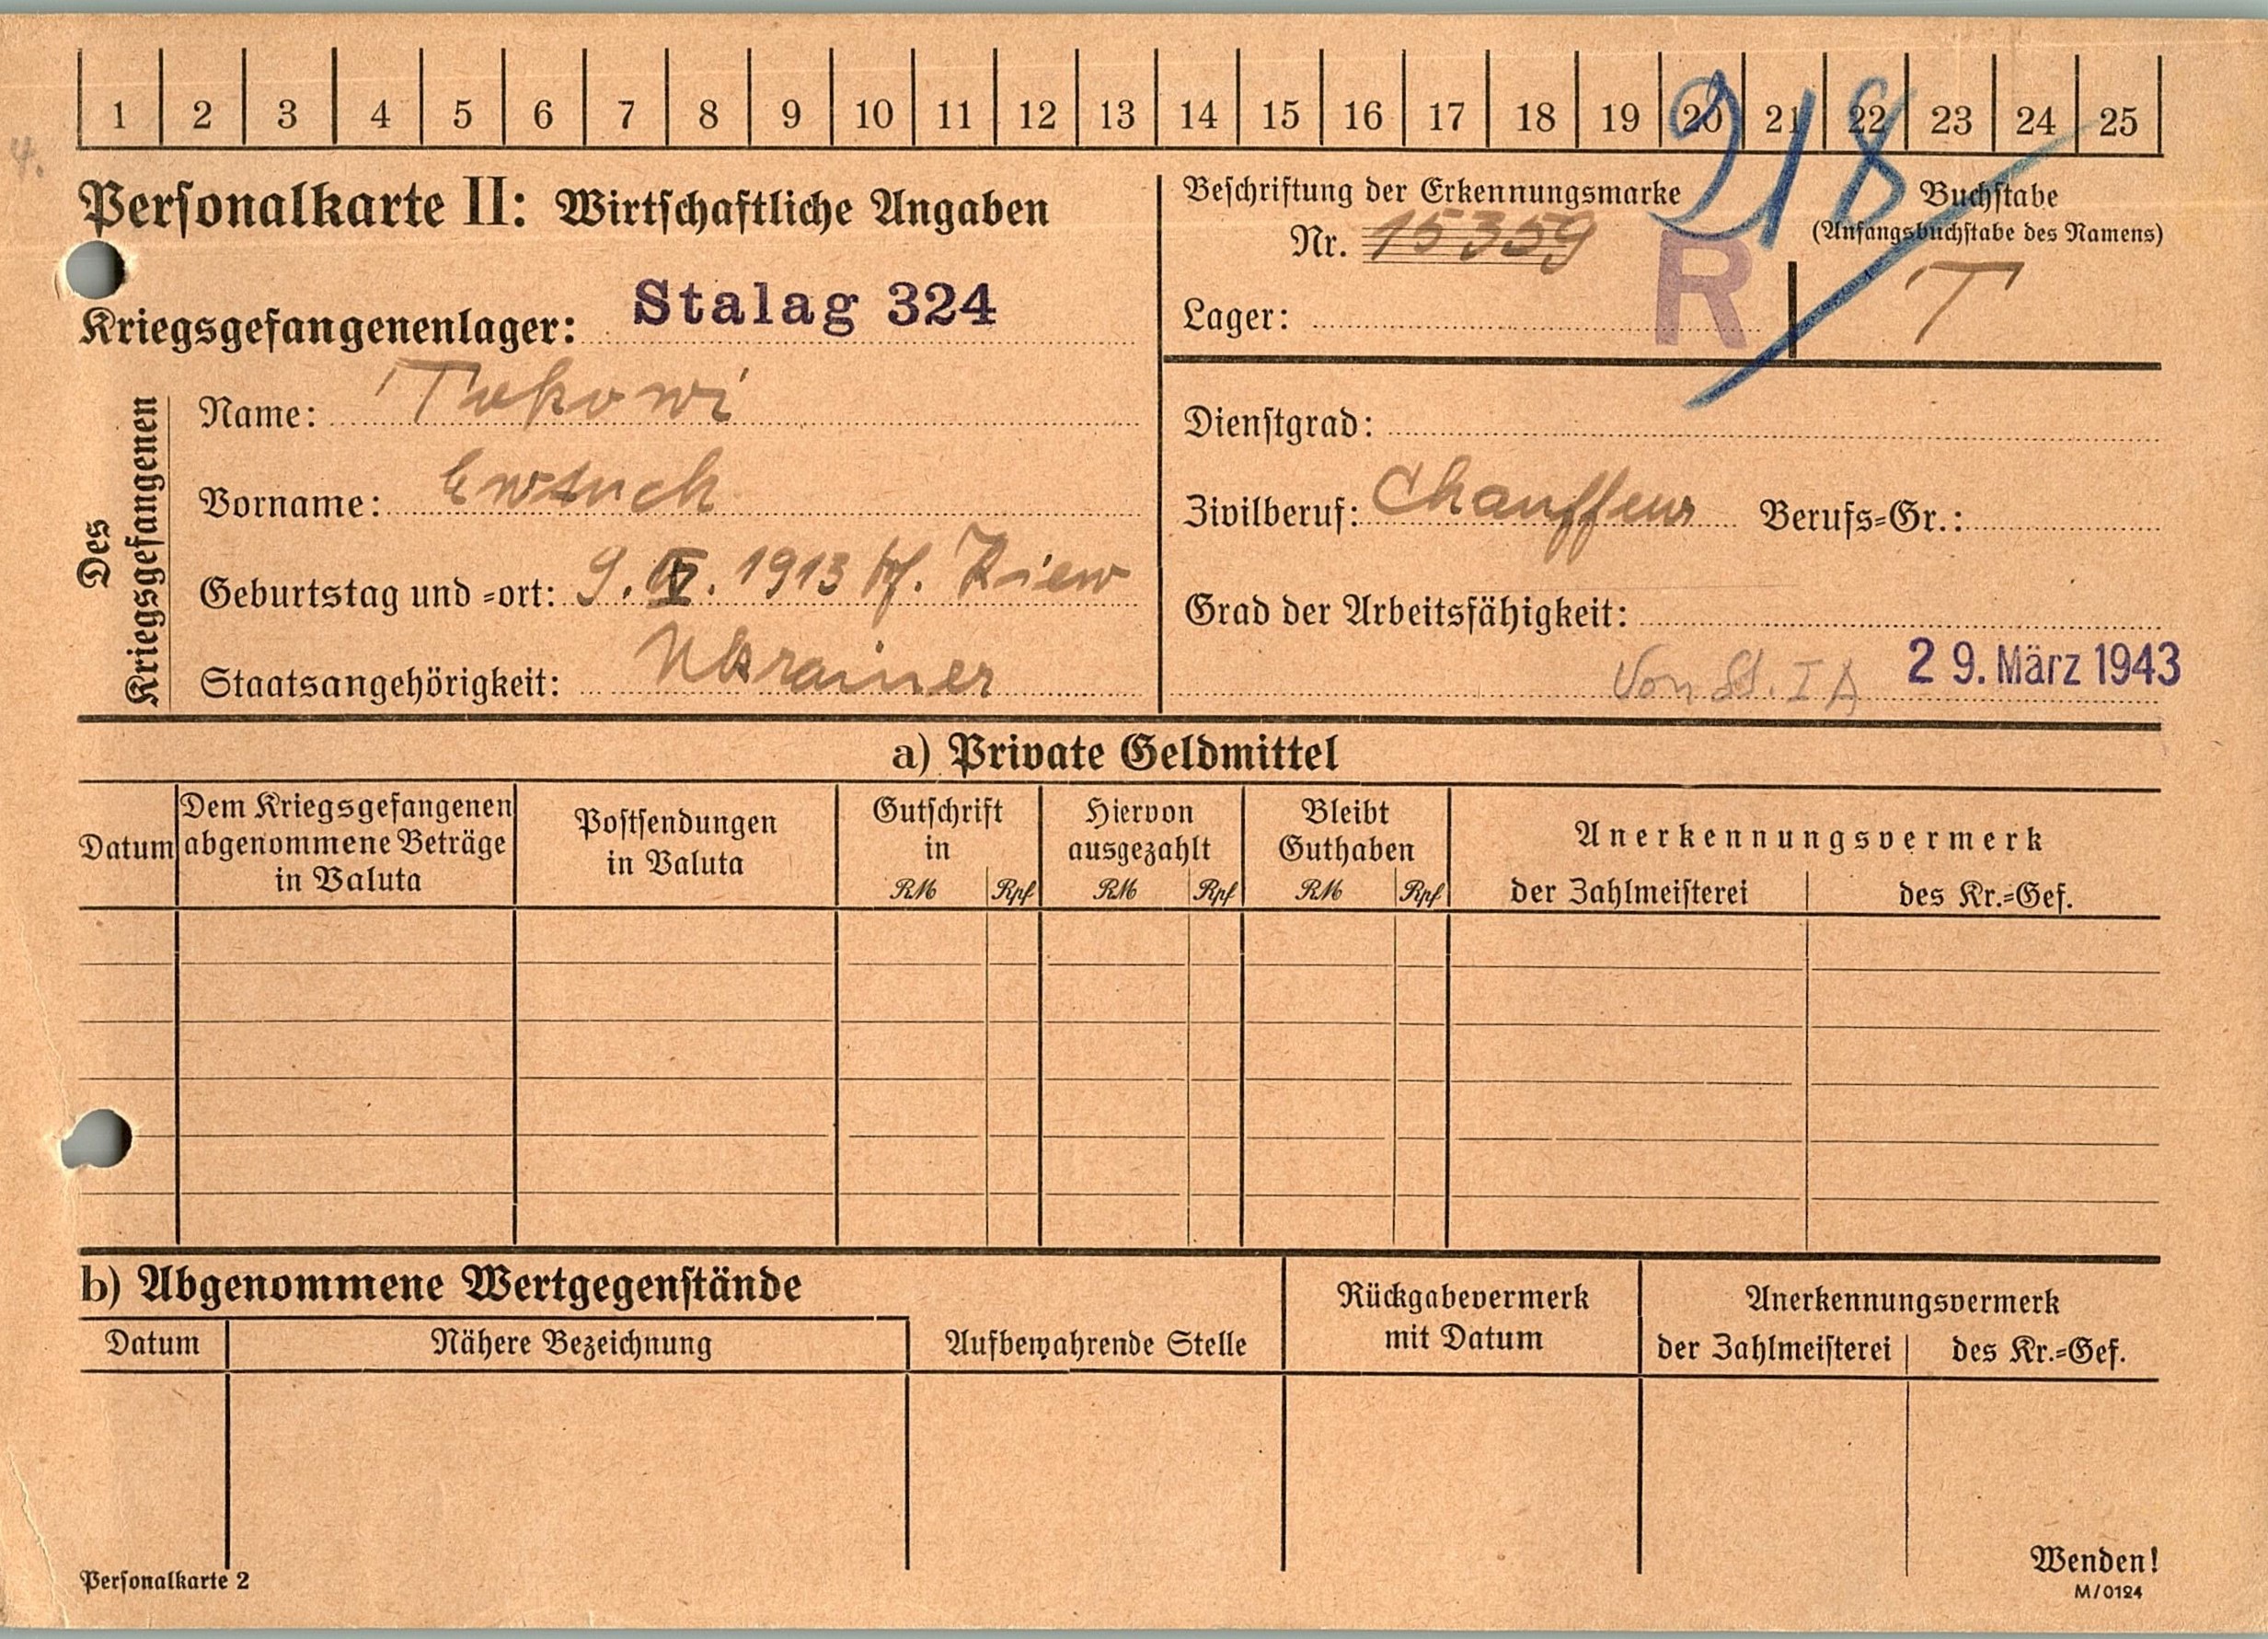 1 2 3 4 5 6 7 8 9 10 11 12 13 14 15 16 17 18 19 20 21 22 23 24 25
218
4.
Personalkarte II: Wirtschaftliche Angaben
Beschriftung der Erkennungsmarke
Nr. 15359
Lager:
R
Buchstabe
(Anfangsbuchstabe des Namens)
T
Kriegsgefangenenlager: Stalag 324
Des Kriegsgefangenen
Name:
Vorname:
Geburtstag und =ort: 9. IV. 1913 Kiew
Staatsangehörigkeit: Ukrainer
Dienstgrad:
Zivilberuf: Chauffeur Berufs=Gr.:
Grad der Arbeitsfähigkeit:
Von St. I A 29. März 1943
a) Private Geldmittel
Datum
Dem Kriegsgefangenen
abgenommene Beträge
in Valuta
Postsendungen
in Valuta
Gutschrift
in
RM Rpf
Hiervon
ausgezahlt
RM Rpf
Bleibt
Guthaben
RM Rpf
Anerkennungsvermerk
der Zahlmeisterei des Kr.=Gef.
b) Abgenommene Wertgegenstände
Datum Nähere Bezeichnung
Aufbewahrende Stelle
Rückgabevermerk
mit Datum
Anerkennungsvermerk
der Zahlmeisterei des Kr.=Gef.
Personalkarte 2
Wenden!
M/0124